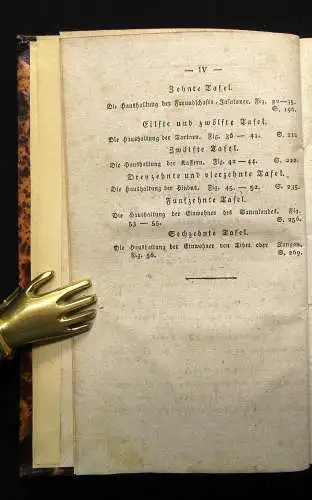 — IV —
Zehnte Tafel.
Die Haushaltung der Freundschafts-Insulaner. Fig. 32—35.
S. 196.
Eilfte und zwölfte Tafel.
Die Haushaltung der Tartaren. Fig. 36 — 41. S. 211.
Zwölfte Tafel.
Die Haushaltung der Kaffern. Fig. 42 — 44. S. 222.
Dreyzehnte und vierzehnte Tafel.
Die Haushaltung der Hindus. Fig. 45. — 52. S. 235.
Funfzehnte Tafel.
Die Haushaltung der Einwohner des Damenlandes. Fig.
53 — 55. S. 256.
Sechzehnte Tafel.
Die Haushaltung der Einwohner von Athm oder
Fig. 56. S. 269.